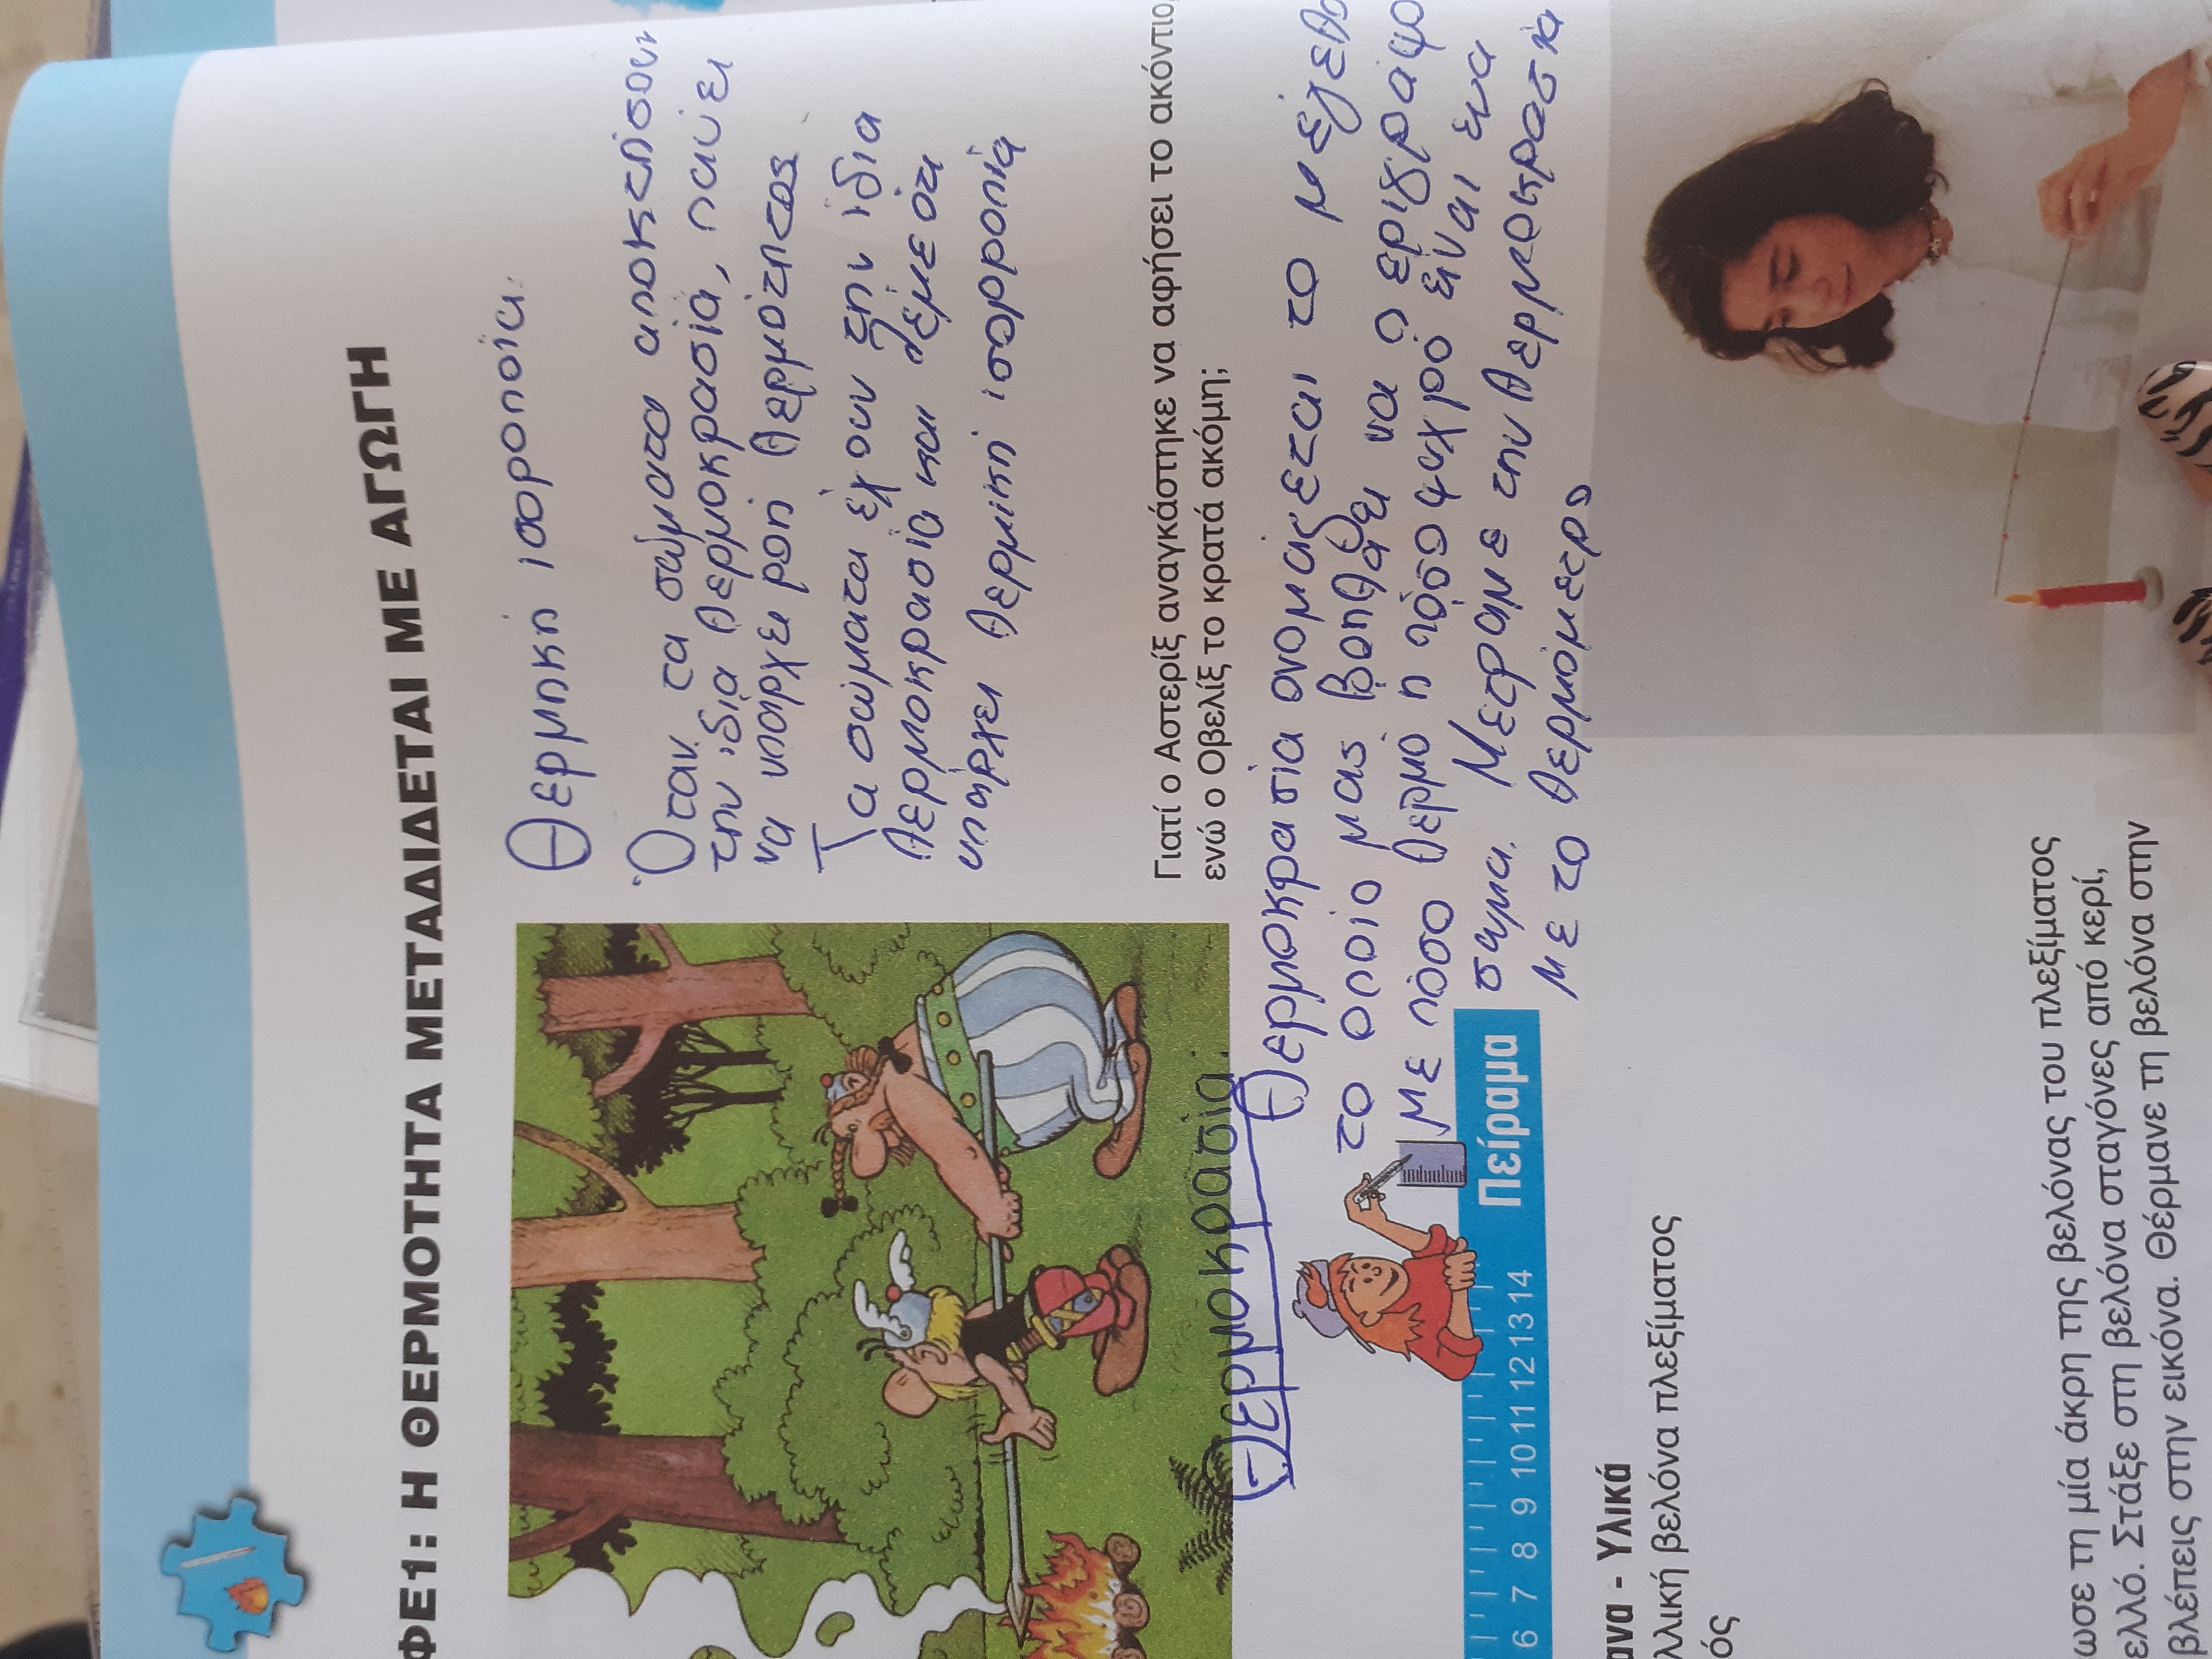 ΦΕ1: Η ΘΕΡΜΟΤΗΤΑ ΜΕΤΑΔΙΔΕΤΑΙ ΜΕ ΑΓΩΓΗ
Θερμική ισοροποία:
Όταν τα σώματα αποκτήσουν
την ίδια θερμοκρασία, παύει
να υπάρχει ροή θερμότητας
Τα σώματα έχουν την ίδια
θερμοκρασία και λέμε ότι
υπάρχει θερμική ισορροπία
Γιατί ο Αστερίξ αναγκάστηκε να αφήσει το ακόντιο,
ενώ ο Οβελίξ το κρατά ακόμη;
Θερμοκρασία:
Θερμοκρασία ονομάζεται το
το οποίο μας βοηθάει να
με πόσο θερμό η πόσο ψυχρό είναι ένα
σώμα. Μετράμε την θερμοκρασία
με το θερμόμετρο
Πείραμα
6 7 8 9 10 11 12 13 14
ανα - Υλικά
λλική βελόνα πλεξίματος
ός
ωσε τη μία άκρη της βελόνας του πλεξίματος
ελλό. Στάξε στη βελόνα σταγόνες από κερί,
βλέπεις στην εικόνα. Θέρμανε τη βελόνα στην